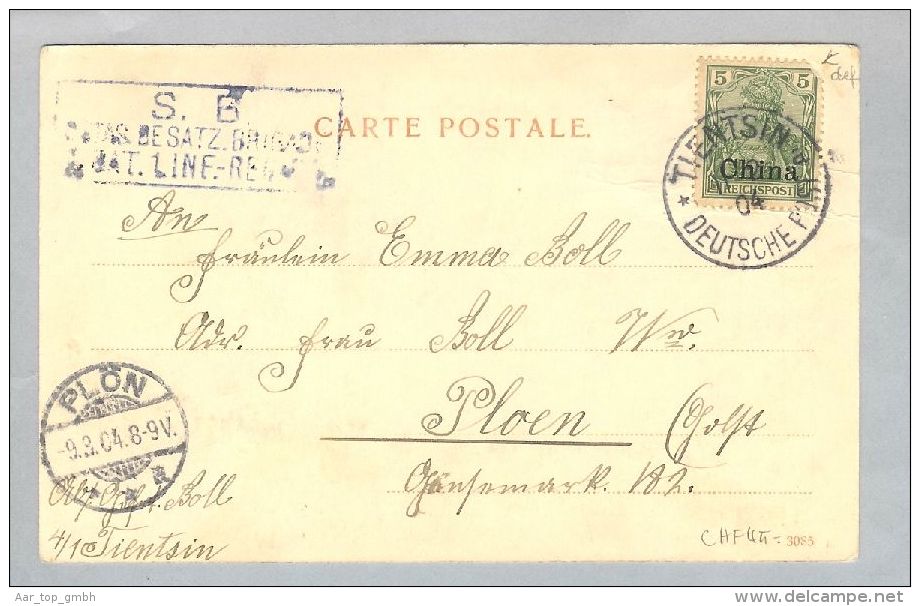 S. B.
BESATZ. BRIGADE
BAT. LINE.-REG
CARTE POSTALE.
5 5
China
REICHSPOST
TIENTSIN
04
DEUTSCHE POST
An
Fräulein Emma Boll
Adr. Frau Boll Ww.
Ploen (Holst
Gänsemarkt
PLÖN
-9.3.04.8-9V.
Boll
4/1 Tientsin
3085
Aar_top_gmbh
www.delcampe.net